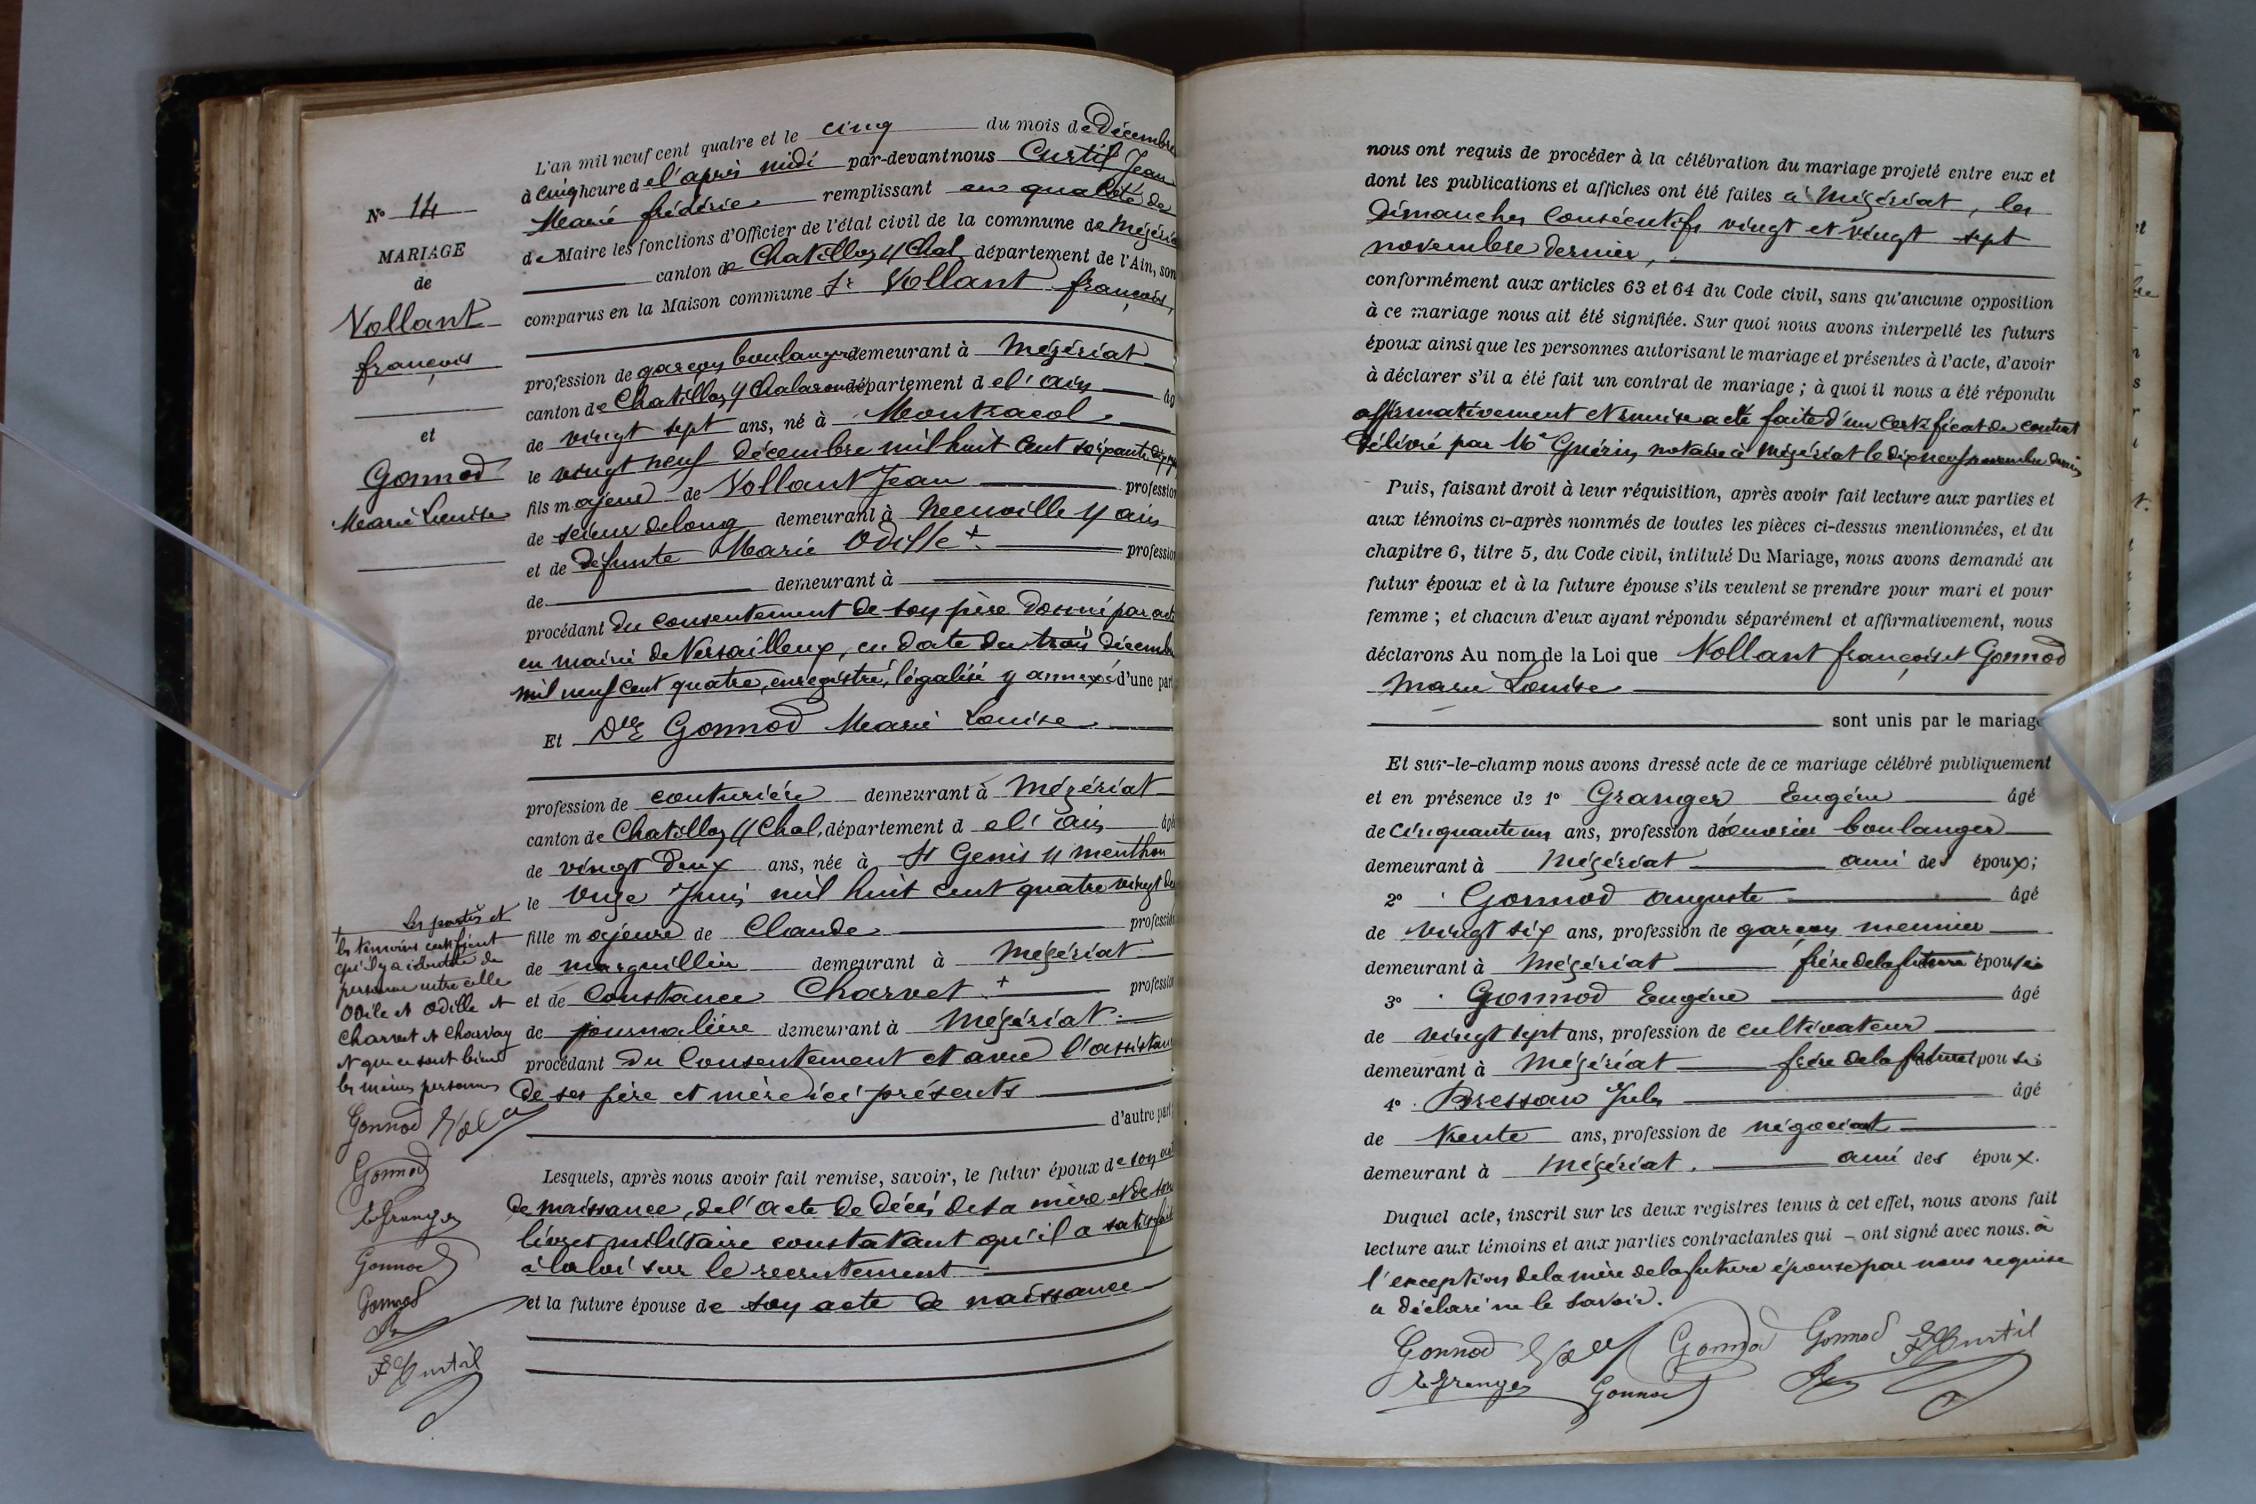 N° 14
MARIAGE
de
Vollant
françois
et
Gonnod
Marie Louise
L'an mil neuf cent quatre et le cinq du mois de Décembre
à cinq heure de l'après midi par-devant nous Curtil Jean
Marie frédéric remplissant en qualité de
de Maire les fonctions d'Officier de l'état civil de la commune de Mézériat
canton de Chatillon s/ Chal. département de l'Ain, son
comparus en la Maison commune Sr Vollant françois,
profession de garçon boulanger demeurant à Mézériat
canton de Chatillon s/ Chalaronne département d el' ain âg
de vingt sept ans, né à Montracol
le vingt neuf décembre mil huit cent soixante dix sept
fils majeur de Vollant Jean profession
de scieur delong demeurant à Neuville s/ ain
et de défunte Marie Odille + profession
de demeurant à
procédant du consentement de son père donné par acte
en mairie de Versailleux, en date du trois décembre
mil neuf cent quatre, enregistré, légalisé y annexé d'une part
Et Dlle Gonnod Marie Louise
profession de couturière demeurant à Mézériat
canton de Chatillon s/ Chal. département d el' ain âgé
de vingt deux ans, née à St Genis s/ menthon
le onze Juin mil huit cent quatre vingt deux
fille majeure de Claude profession
de marguillier demeurant à Mézériat
et de Constance Charvet + profession
de journalière demeurant à Mézériat
procédant du Consentement et avec l'assistance
de ses père et mère ici présents
d'autre part
Lesquels, après nous avoir fait remise, savoir, le futur époux de son acte
de naissance, de l'acte de décès de sa mère et de son
livret militaire constatant qu'il a satisfait
à la loi sur le recrutement
et la future épouse de son acte de naissance
+ Les parties et
les témoins certifient
qu'il y a identité de
personne entre celle
Odile et Odille et
Charvet et Charvay
et que ce sont bien
les mêmes personnes
Gonnod
Gonnod
E Granger
Gonnod
Gonnod
F Curtil
nous ont requis de procéder à la célébration du mariage projeté entre eux et
dont les publications et affiches ont été faites à Mézériat, les
dimanches consécutifs vingt et vingt sept
novembre dernier,
conformément aux articles 63 et 64 du Code civil, sans qu'aucune opposition
à ce mariage nous ait été signifiée. Sur quoi nous avons interpellé les futurs
époux ainsi que les personnes autorisant le mariage et présentes à l'acte, d'avoir
à déclarer s'il a été fait un contrat de mariage ; à quoi il nous a été répondu
affirmativement et remise a été faite d'un certificat de contrat
délivré par Me Guérin, notaire à Mézériat le dix neuf novembre dernier
Puis, faisant droit à leur réquisition, après avoir fait lecture aux parties et
aux témoins ci-après nommés de toutes les pièces ci-dessus mentionnées, et du
chapitre 6, titre 5, du Code civil, intitulé Du Mariage, nous avons demandé au
futur époux et à la future épouse s'ils veulent se prendre pour mari et pour
femme ; et chacun d'eux ayant répondu séparément et affirmativement, nous
déclarons Au nom de la Loi que Vollant françois et Gonnod
Marie Louise
sont unis par le mariage
Et sur-le-champ nous avons dressé acte de ce mariage célébré publiquement
et en présence de 1° Granger Eugène âgé
de cinquante un ans, profession d'ouvrier boulanger
demeurant à Mézériat ami des époux ;
2° Gonnod auguste âgé
de vingt six ans, profession de garçon meunier
demeurant à Mézériat frère de la future épouse
3° Gonnod Eugène âgé
de vingt sept ans, profession de cultivateur
demeurant à Mézériat frère de la future épouse
4° Bressan Jules âgé
de trente ans, profession de négociant
demeurant à Mézériat. ami des époux.
Duquel acte, inscrit sur les deux registres tenus à cet effet, nous avons fait
lecture aux témoins et aux parties contractantes qui – ont signé avec nous. à
l'exception de la mère de la future épouse par nous requise
a déclaré ne le savoir.
Gonnod Gonnod Gonnod F Curtil
E Granger Gonnod